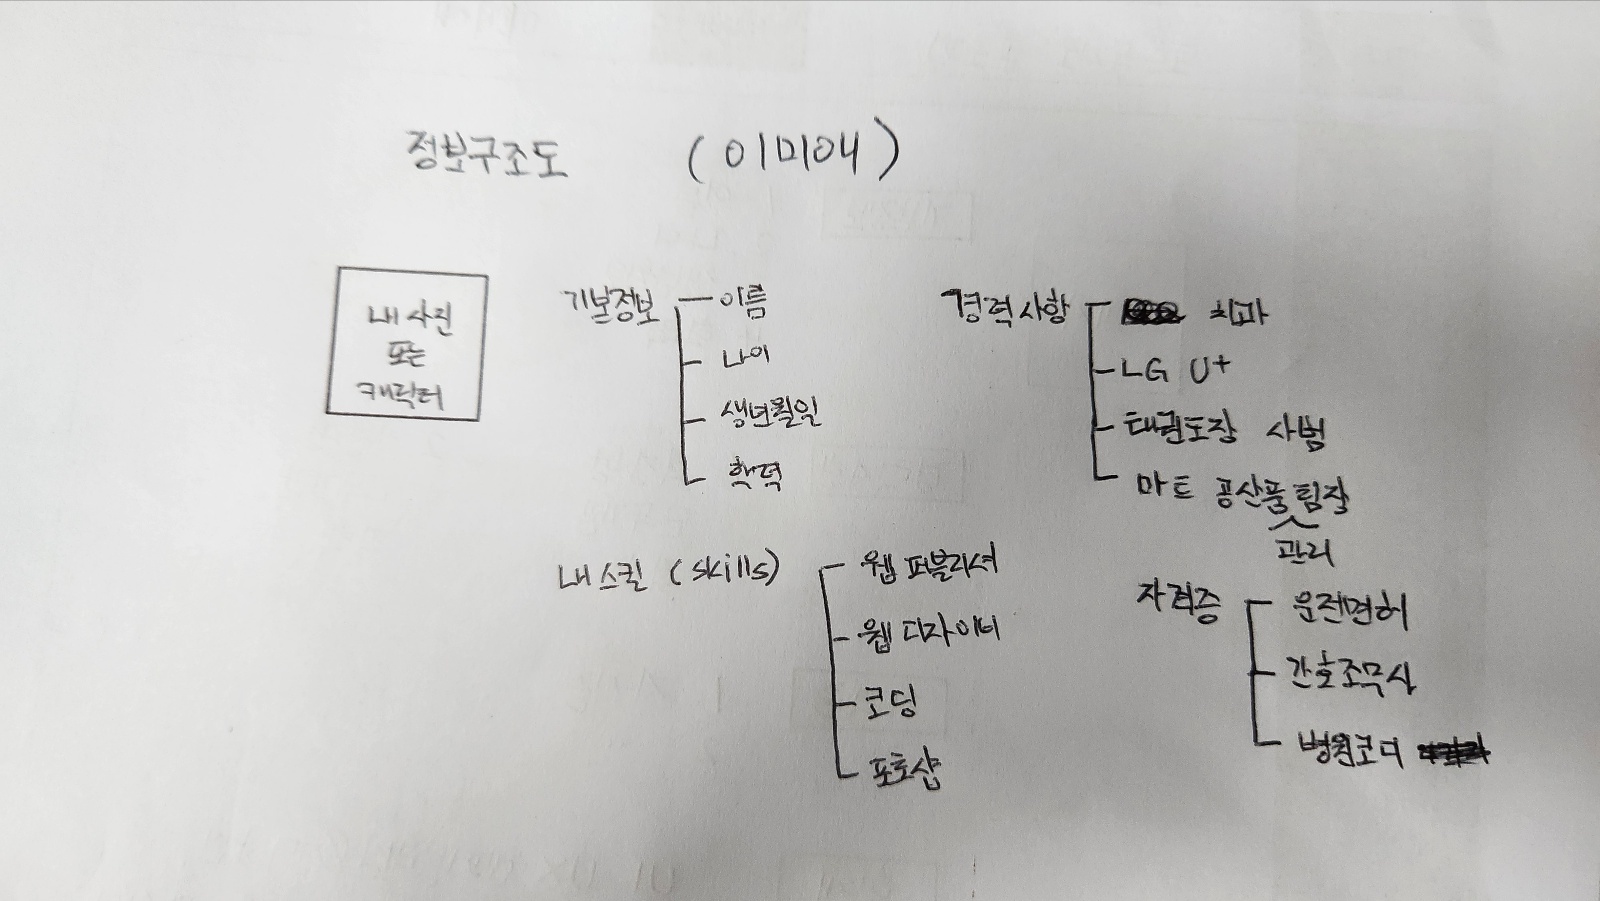 정보구조도 (이미애)
내 사진
또는
캐릭터
기본정보
이름
나이
생년월일
학력
경력사항
치과
LG U+
태권도장 사범
마트 공산품 팀장
관리
내 스킬 (skills)
웹 퍼블리셔
웹 디자이너
코딩
포토샵
자격증
운전면허
간호조무사
병원코디